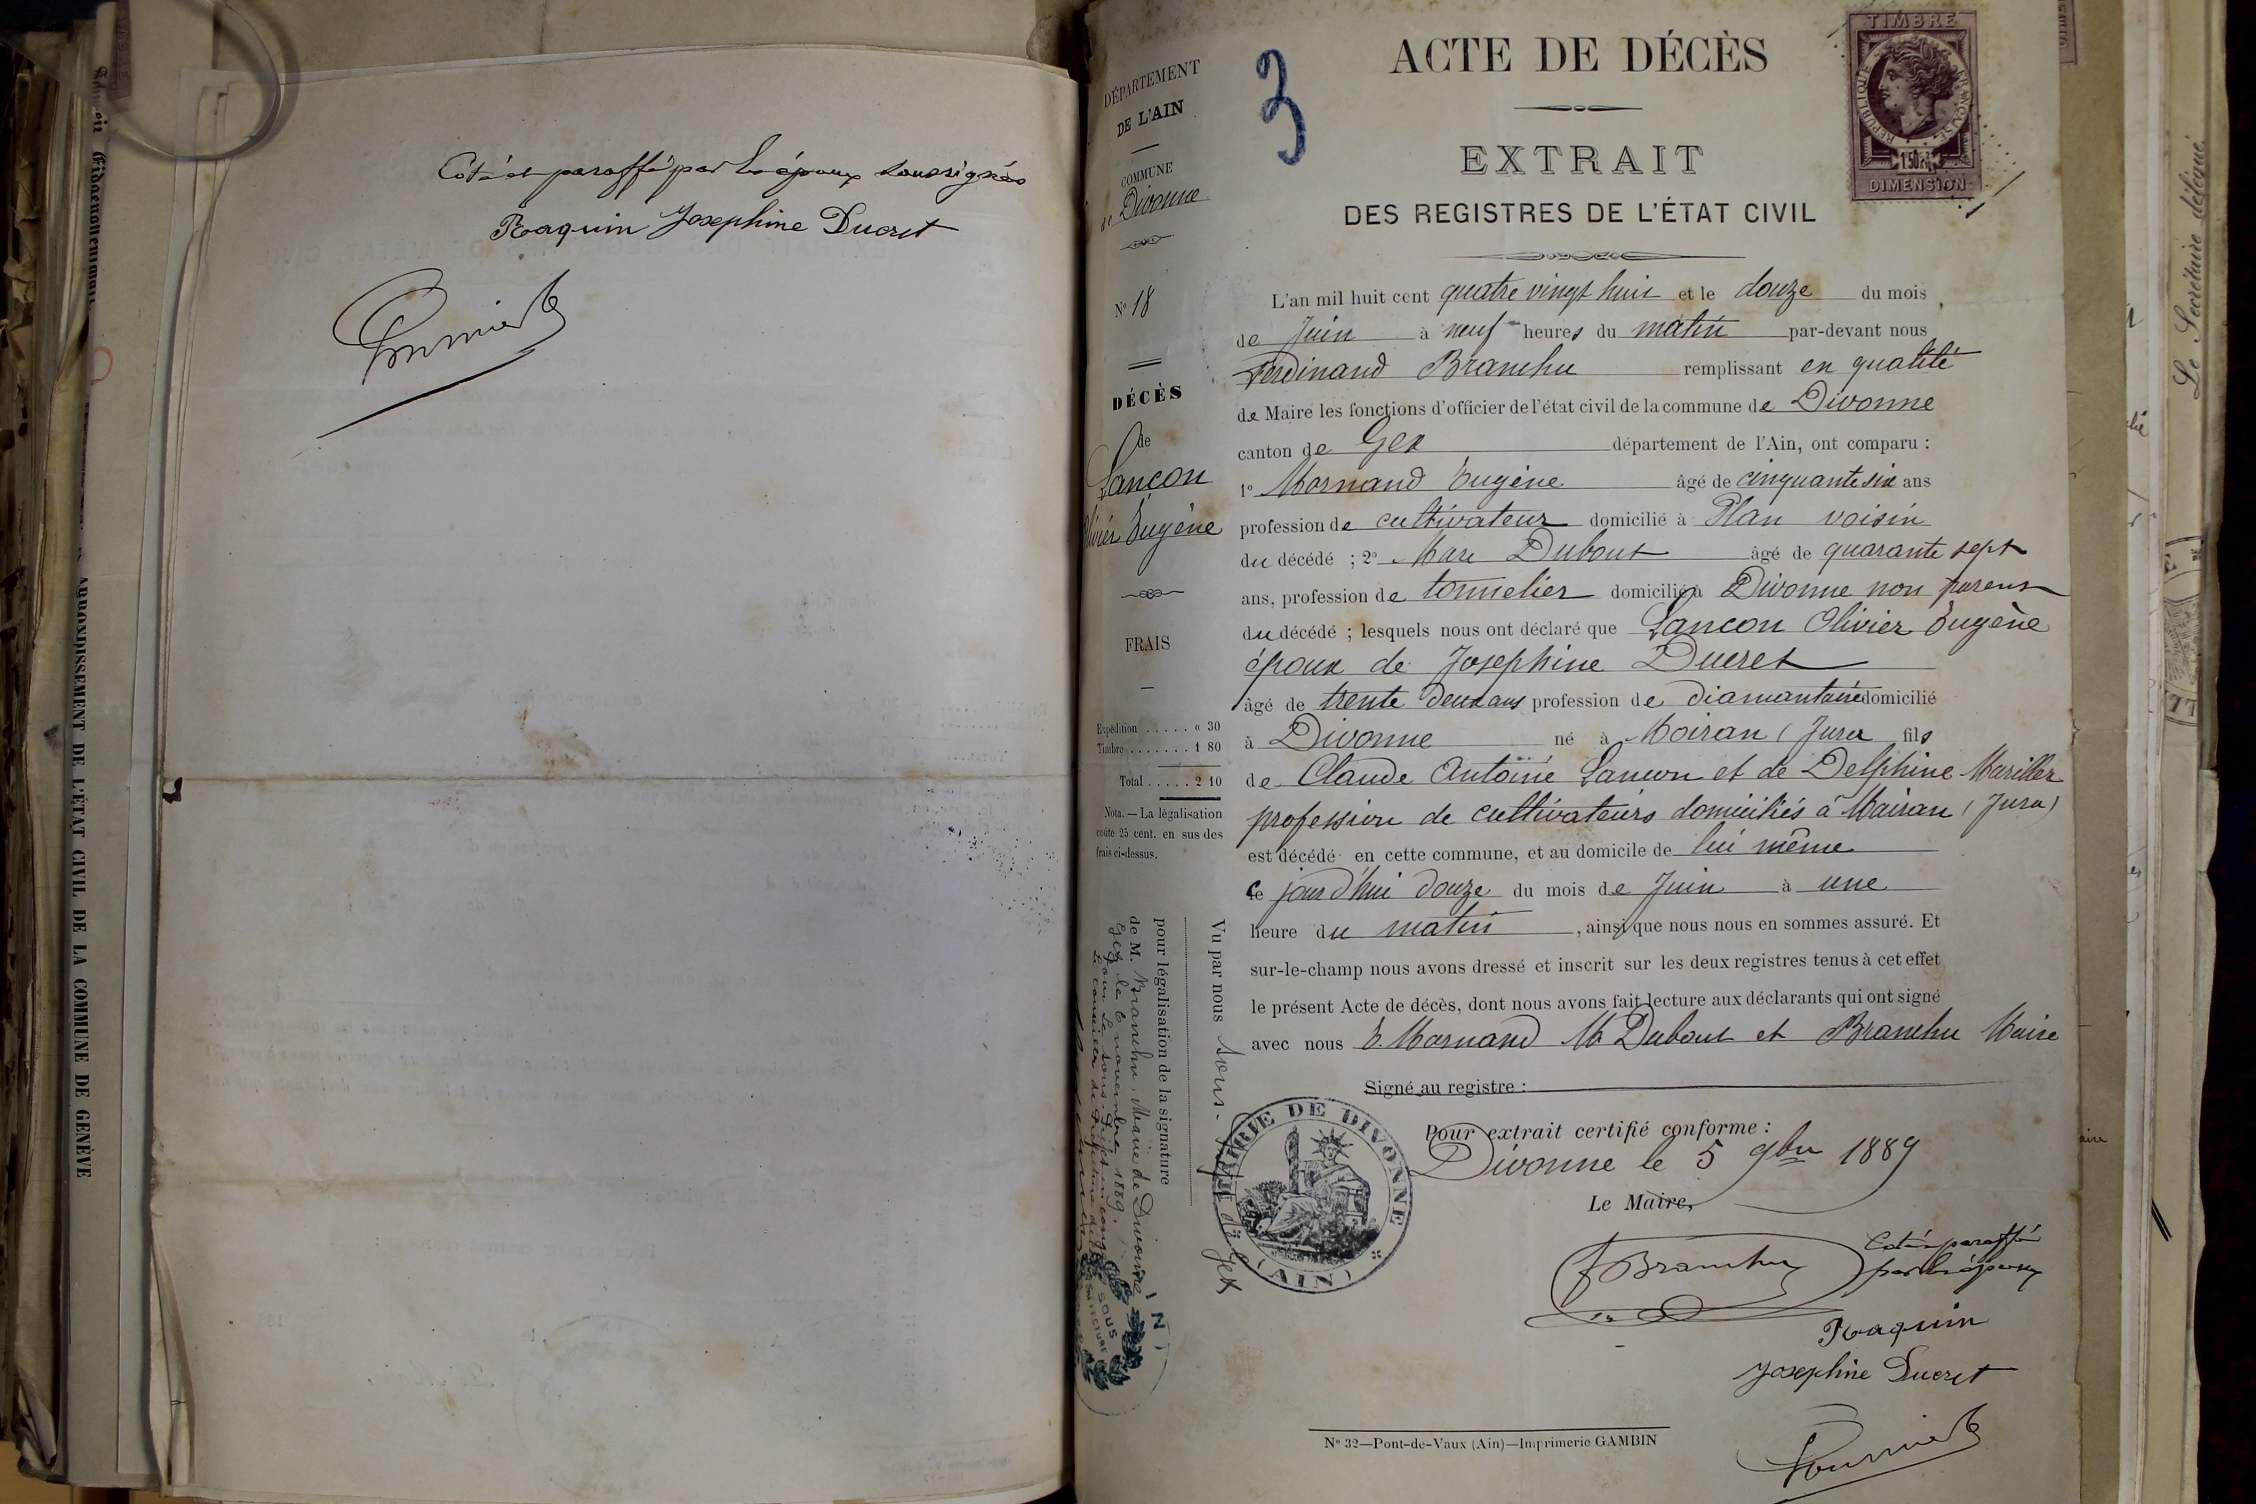 Coté et paraffé par les époux soussignés
Raquin Josephine Ducret
ARRONDISSEMENT DE L'ÉTAT CIVIL DE LA COMMUNE DE GENÈVE
DÉPARTEMENT
DE L'AIN
COMMUNE
de Divonne
No 18
DÉCÈS
de
Lançon
Olivier Eugène
FRAIS
Expédition ..... « 30
Timbre ....... 1 80
Total ..... 2 10
Nota. — La légalisation
coûte 25 cent. en sus des
frais ci-dessus.
Vu par nous Sous-Préfet de Gex
pour légalisation de la signature
de M. Branchu, Maire de Divonne
Gex le 6 novembre 1889.
Pour le Sous-Préfet en congé
3
ACTE DE DÉCÈS
EXTRAIT
DES REGISTRES DE L'ÉTAT CIVIL
TIMBRE
RÉPUBLIQUE FRANÇAISE
DIMENSION
L'an mil huit cent quatre vingt huit et le douze du mois
de Juin à neuf heures du matin par-devant nous
Ferdinand Branchu remplissant en qualité
de Maire les fonctions d'officier de l'état civil de la commune de Divonne
canton de Gex département de l'Ain, ont comparu :
1o Mornand Eugène âgé de cinquante six ans
profession de cultivateur domicilié à Plan voisin
du décédé ; 2o Marc Dubout âgé de quarante sept
ans, profession de tonnelier domicilié à Divonne non parent
du décédé ; lesquels nous ont déclaré que Lancon Olivier Eugène
époux de Josephine Ducret
âgé de trente deux ans profession de diamantaire domicilié
à Divonne né à Moiran (Jura fils
de Claude Antoine Lancon et de Delphine Mariller
profession de cultivateurs domiciliés à Mairan (Jura)
est décédé en cette commune, et au domicile de lui même
ce jourd'hui douze du mois de Juin à une
heure du matin, ainsi que nous nous en sommes assuré. Et
sur-le-champ nous avons dressé et inscrit sur les deux registres tenus à cet effet
le présent Acte de décès, dont nous avons fait lecture aux déclarants qui ont signé
avec nous E. Mornand M Dubout et Branchu Maire
Signé au registre :
Pour extrait certifié conforme :
Divonne le 5 9bre 1889
Le Maire,
MAIRIE DE DIVONNE
(AIN)
F Branchu
Coté et paraffé
par les époux
Raquin
Josephine Ducret
No 32—Pont-de-Vaux (Ain)—Imprimerie GAMBIN
Le Secrétaire délégué